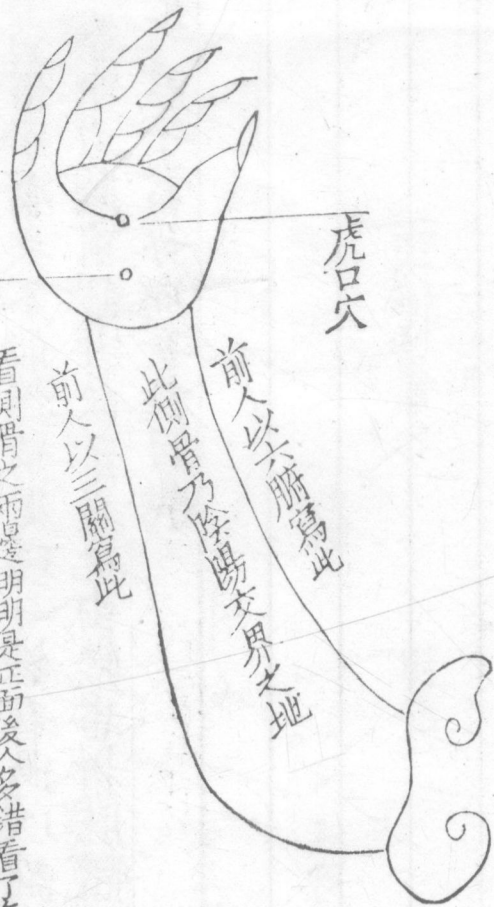 虎口穴
前人以六腑寫此
此側骨乃陰陽交界之地
前人以三關寫此
看側骨之兩邊明明是正面後人多錯看了